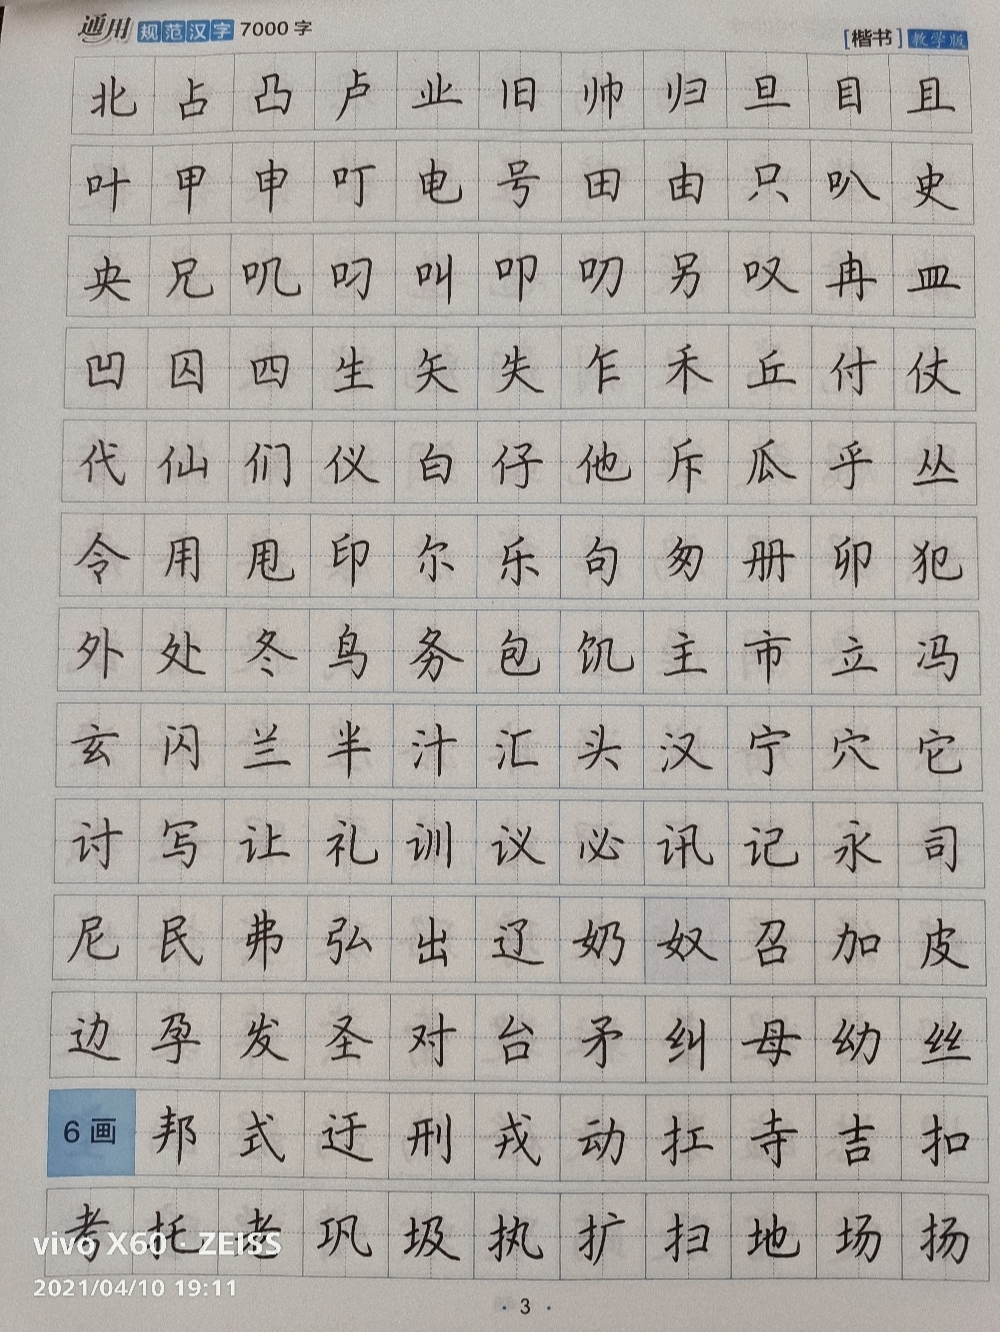 通用 规范汉字 7000 字 [楷书] 教学版
北 占 凸 卢 业 旧 帅 归 旦 目 且
叶 甲 申 叮 电 号 田 由 只 叭 史
央 兄 叽 叼 叫 叩 叨 另 叹 冉 皿
凹 囚 四 生 矢 失 乍 禾 丘 付 仗
代 仙 们 仪 白 仔 他 斥 瓜 乎 丛
令 用 甩 印 尔 乐 句 匆 册 卯 犯
外 处 冬 鸟 务 包 饥 主 市 立 冯
玄 闪 兰 半 汁 汇 头 汉 宁 穴 它
讨 写 让 礼 训 议 必 讯 记 永 司
尼 民 弗 弘 出 辽 奶 奴 召 加 皮
边 孕 发 圣 对 台 矛 纠 母 幼 丝
6 画 邦 式 迂 刑 戎 动 扛 寺 吉 扣
考 托 老 巩 圾 执 扩 扫 地 场 扬
vivo X60 · ZEISS
2021/04/10 19:11
· 3 ·